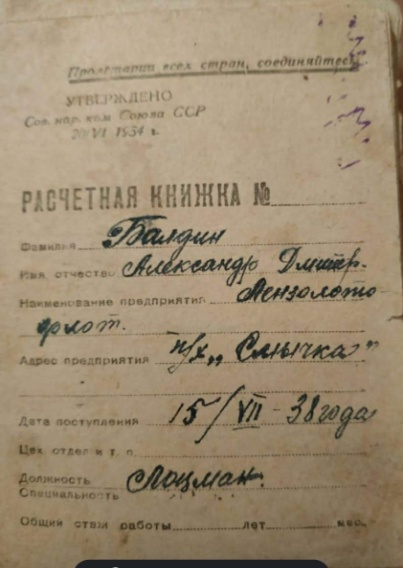 Пролетарии всех стран, соединяйтесь
УТВЕРЖДЕНО
Сов. нар. ком Союза ССР
20/VI 1934 г.
РАСЧЕТНАЯ КНИЖКА №
Фамилия Балдин
Имя, отчество Александр Дмитр.
Наименование предприятия Лензолото
флот.
Адрес предприятия п/х „Смычка"
Дата поступления 15/VII-38 года
Цех, отдел и т. п.
Должность Лоцман.
Специальность
Общий стаж работы лет мес.